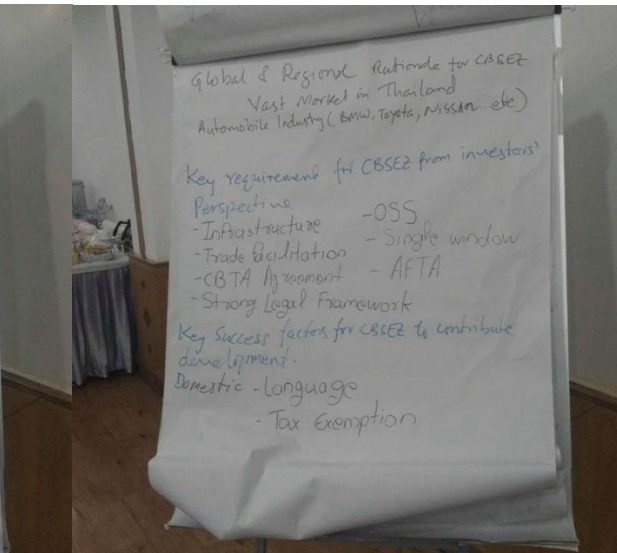 Global & Regional Rationale for CBSEZ
Vast Market in Thailand
Automobile Industry (BMW, Toyota, Nissan.. etc)
Key requirement for CBSEZ from investors'
Perspective
- Infrastructure
- Trade facilitation
- CBTA Agreement
- Strong Legal Framework
- OSS
- Single window
- AFTA
Key Success factors for CBSEZ to contribute
development.
Domestic - Language
- Tax Exemption